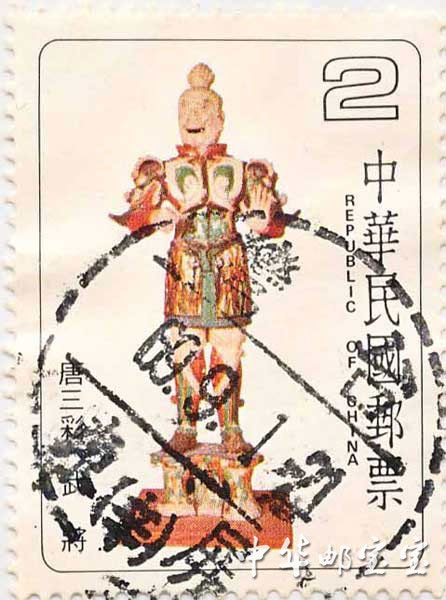 2
中華民國郵票
REPUBLIC OF CHINA
唐三彩武將
中华邮宝宝